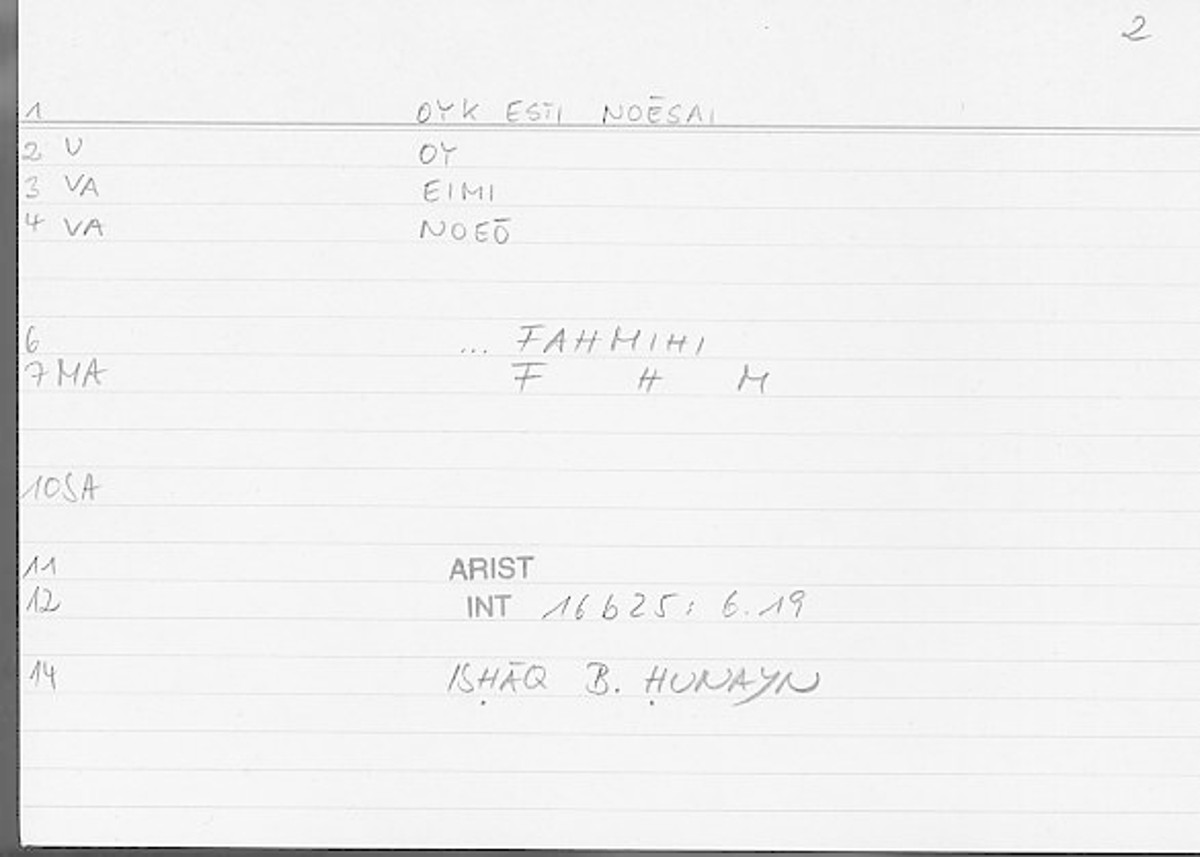 2
1 OYK ESTI NOĒSAI
2 V OY
3 VA EIMI
4 VA NOEŌ
6 ... FAHMIHI
7 MA F H M
10 SA
11 ARIST
12 INT 16b25; 6.19
14 ISḤĀQ B. ḤUNAYN